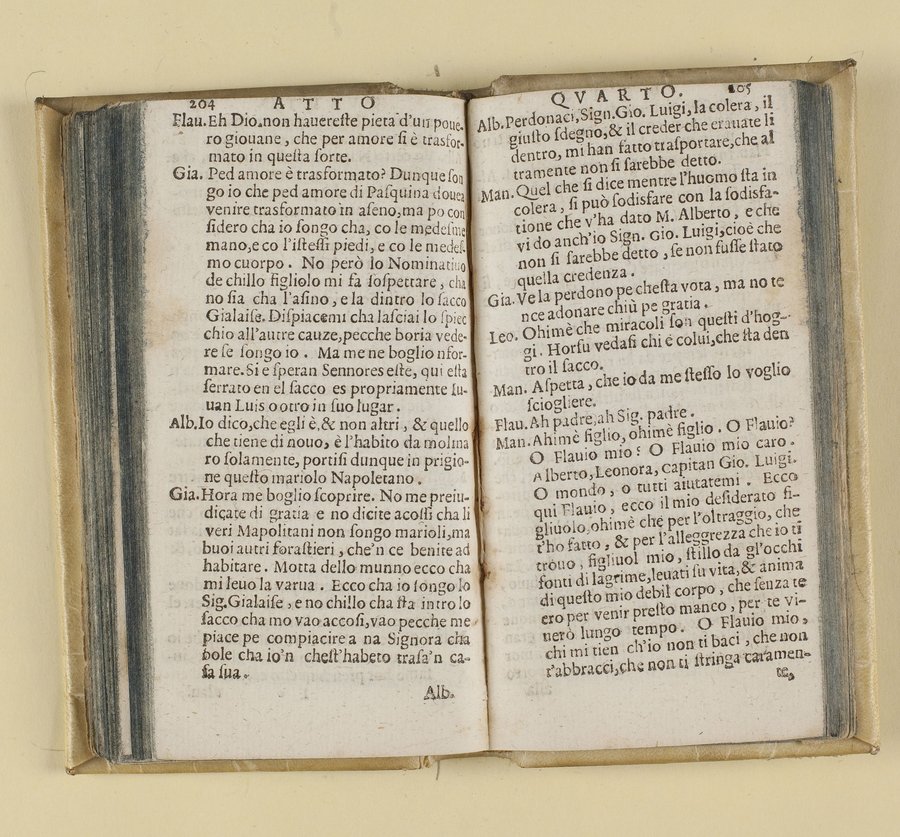 204 ATTO
Flau. Eh Dio, non hauereſte pietà d'un poue-
ro giouane, che per amore ſi è trasfor-
mato in queſta ſorte.
Gia. Ped amore è trasformato? Dunque ſon
go io che ped amore di Paſquina douea
venire trasformato in aſeno, ma po con
ſidero cha io ſongo cha, co le medeſime
mano, e co l'iſteſſi piedi, e co le medeſ-
mo cuorpo. No però lo Nominatiuo
de chillo figliolo mi fa ſoſpettare, cha
no ſia cha l'aſino, e la dintro lo ſacco
Gialaiſe. Diſpiacemi cha laſciai lo ſpiec
chio all'autre cauze, pecche boria vede-
re ſe ſongo io. Ma me ne boglio nfor-
mare. Si e ſperan Sennores eſte, qui eſta
ſerrato en el ſacco es propriamente ſu-
uan Luis o otro in ſuo lugar.
Alb. Io dico, che egli è, & non altri, & quello
che tiene di nouo, è l'habito da molina
ro ſolamente, portiſi dunque in prigio-
ne queſto mariolo Napoletano.
Gia. Hora me boglio ſcoprire. No me preiu-
dicate di gratia e no dicite acoſſi cha li
veri Mapolitani non ſongo marioli, ma
buoi autri foraſtieri, che'n ce benite ad
habitare. Motta dello munno ecco cha
mi leuo la varua. Ecco cha io ſongo lo
Sig. Gialaiſe, e no chillo cha ſta intro lo
ſacco cha mo vao accoſi, vao pecche me
piace pe compiacire a na Signora cha
bole cha io'n cheſt'habeto traſa'n ca-
ſa ſua.
Alb.
QVARTO. 205
Alb. Perdonaci, Sign. Gio. Luigi, la colera, il
giuſto ſdegno, & il creder che erauate li
dentro, mi han fatto traſportare, che al
tramente non ſi ſarebbe detto.
Man. Quel che ſi dice mentre l'huomo ſta in
colera, ſi può ſodisfare con la ſodisfa-
tione che v'ha dato M. Alberto, e che
vi do anch'io Sign. Gio. Luigi, cioè che
non ſi ſarebbe detto, ſe non fuſſe ſtato
quella credenza.
Gia. Ve la perdono pe cheſta vota, ma no te
nce adonare chiù pe gratia.
Leo. Ohimè che miracoli ſon queſti d'hog-
gi. Horſu vedaſi chi è colui, che ſta den
tro il ſacco.
Man. Aſpetta, che io da me ſteſſo lo voglio
ſciogliere.
Flau. Ah padre, ah Sig. padre.
Man. Ahimè figlio, ohimè figlio. O Flauio?
O Flauio mio? O Flauio mio caro.
Alberto, Leonora, capitan Gio. Luigi.
O mondo, o tutti aiutatemi. Ecco
qui Flauio, ecco il mio deſiderato fi-
gliuolo, ohimè che per l'oltraggio, che
t'ho fatto, & per l'allegrezza che io ti
trouo, figliuol mio, ſtillo da gl'occhi
fonti di lagrime, leuati ſu vita, & anima
di queſto mio debil corpo, che ſenza te
ero per venir preſto manco, per te vi-
uerò lungo tempo. O Flauio mio,
chi mi tien ch'io non ti baci, che non
t'abbracci, che non ti ſtringa caramen-
te,